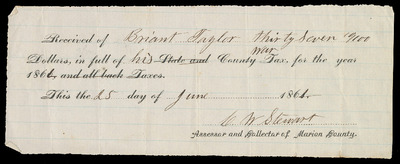 Received of Briant Taylor thirty Seven 9/100
war
Dollars, in full of his State and County Tax, for the year
186, and all back Taxes.
This the 25 day of June 186
C W Stewart
Assessor and Collector of Marion County.